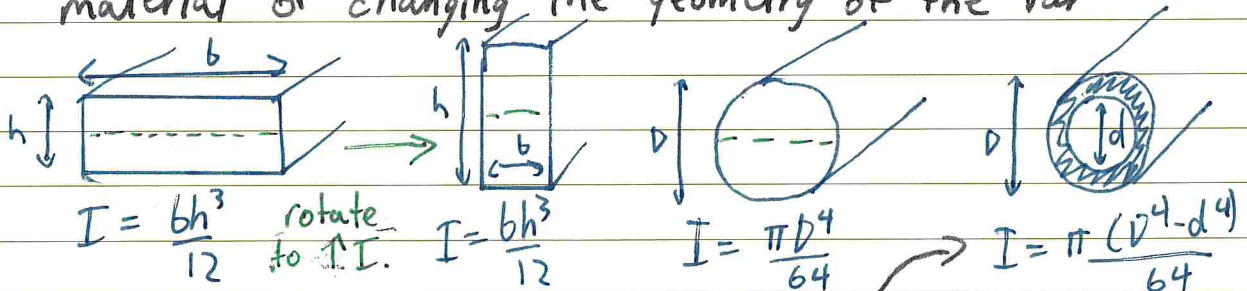 material or changing the geometry of the bar
b
h
h
b
D
D
d
I = bh³/12
rotate to ↑I.
I = bh³/12
I = πD⁴/64
I = π(D⁴-d⁴)/64